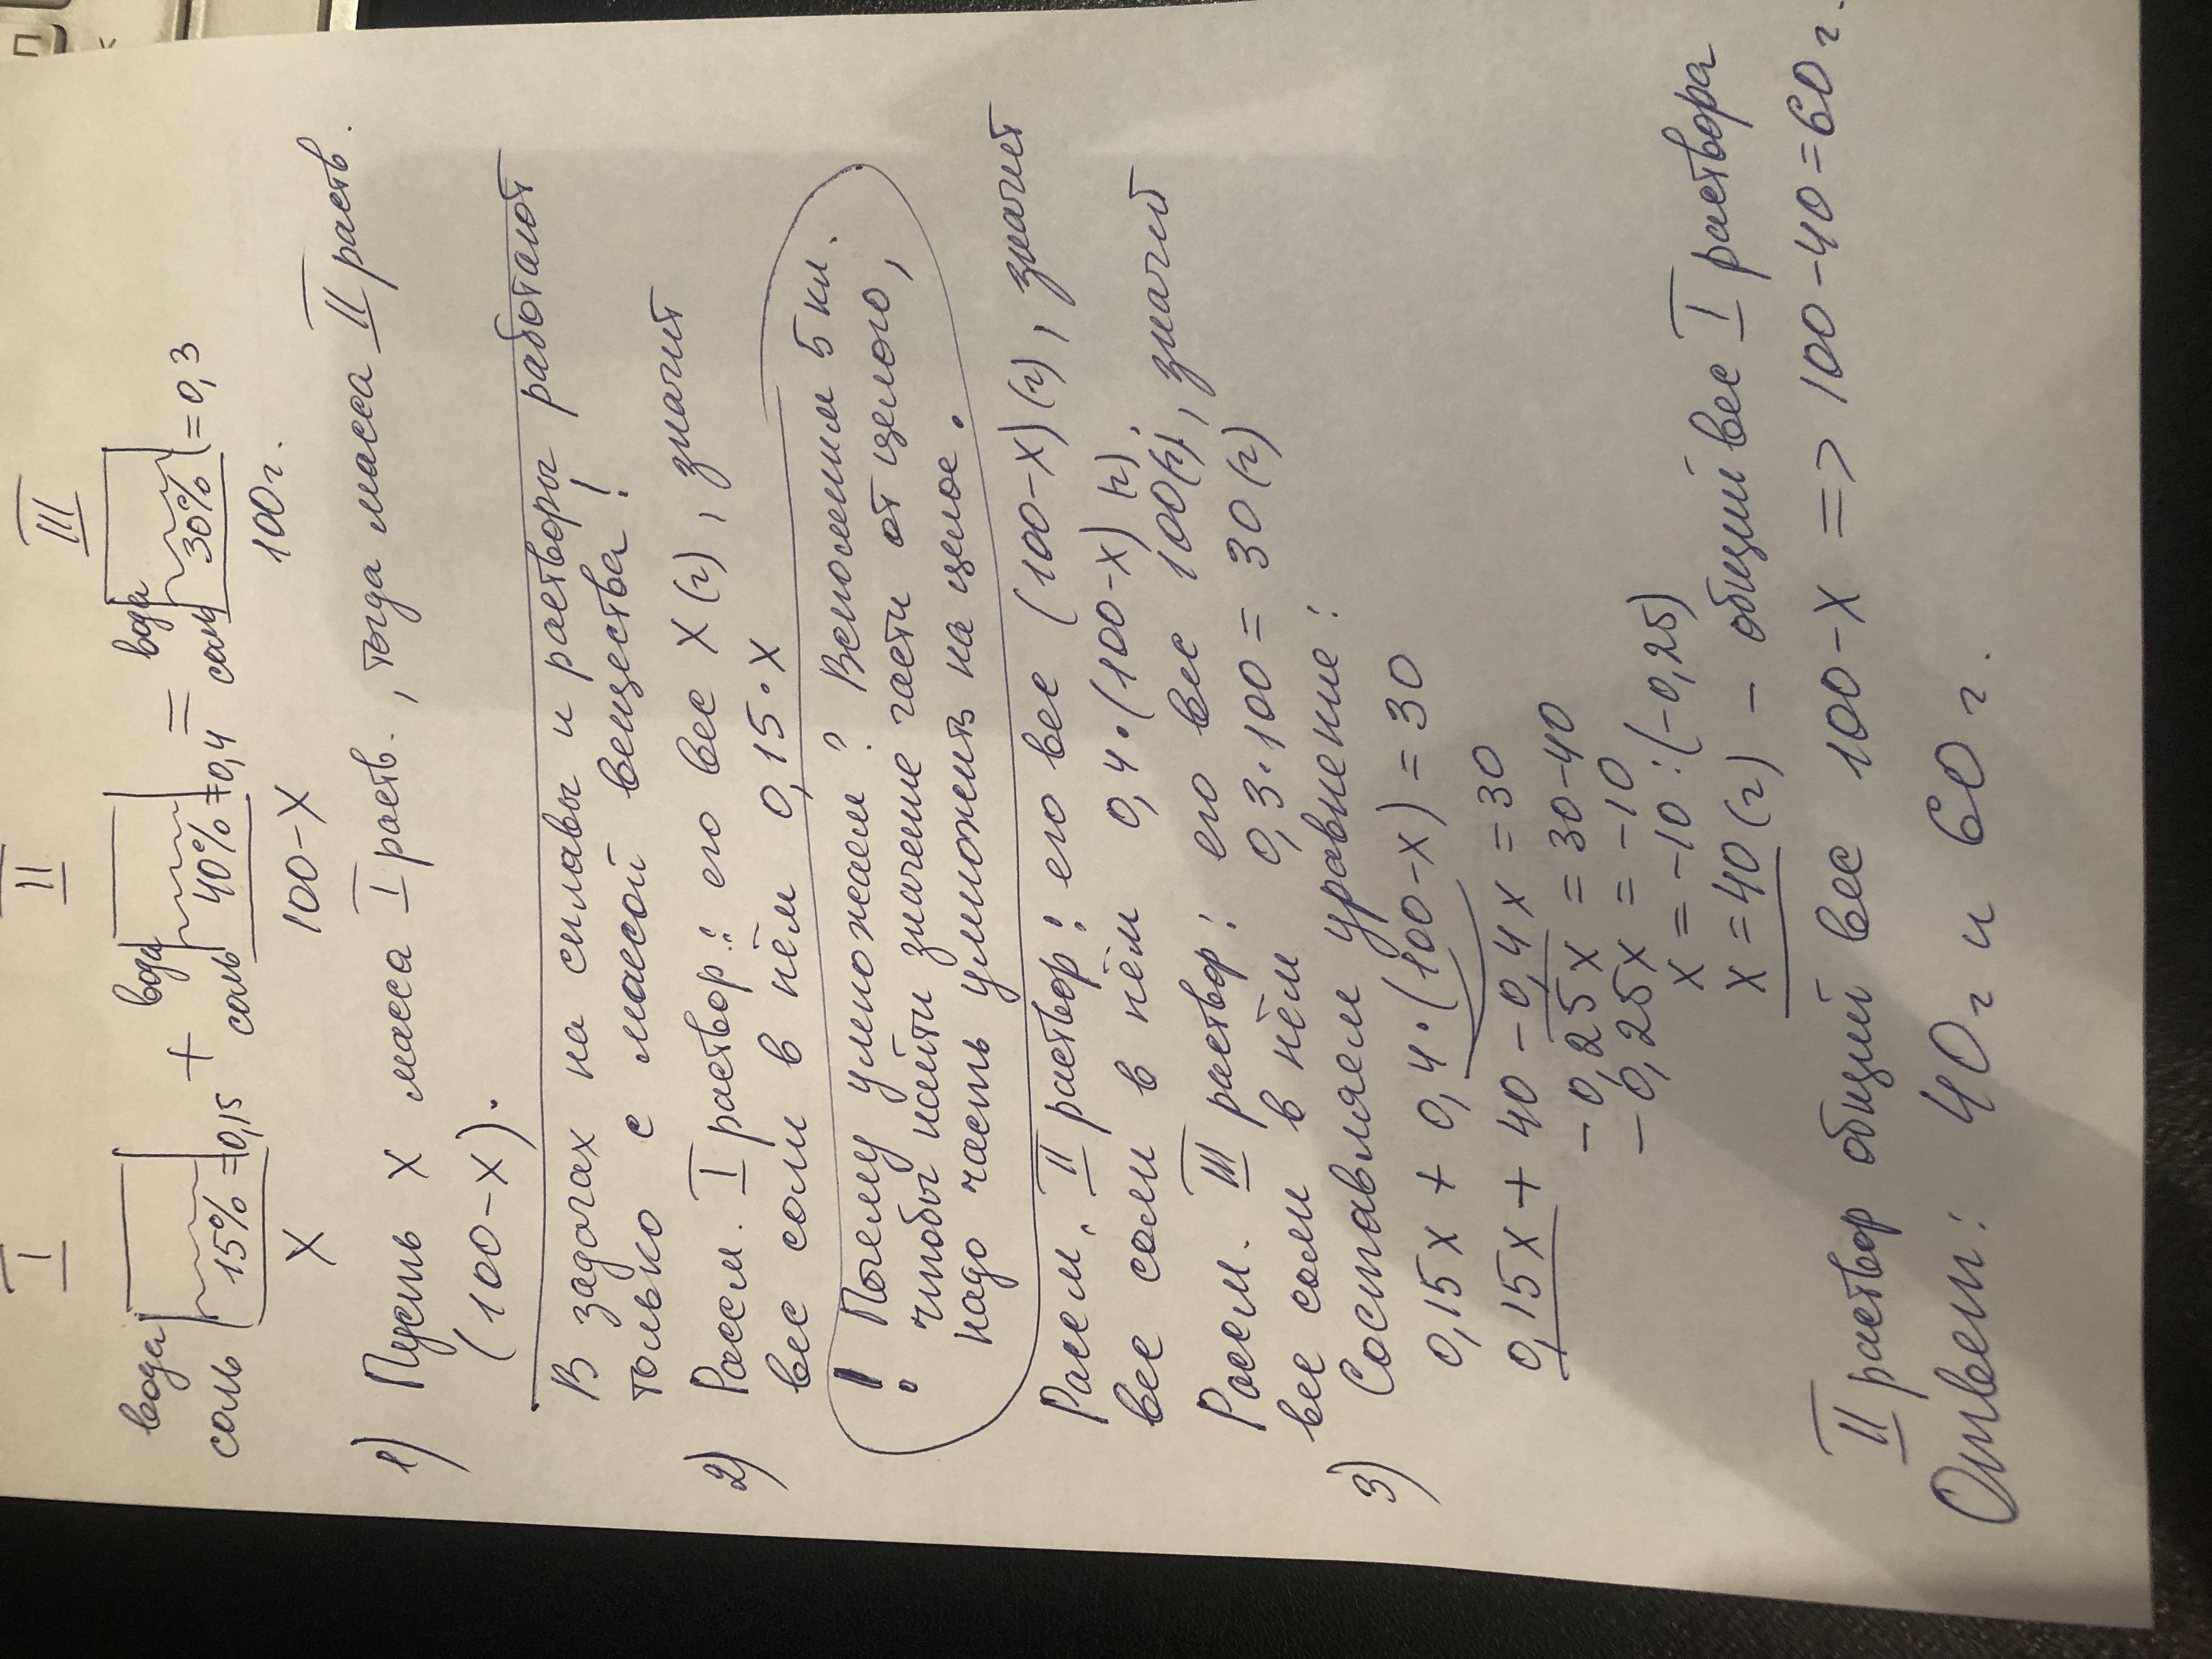 I II III
вода вода вода
соль 15% =0,15 + соль 40% =0,4 = соль 30% =0,3
X 100-X 100г.
1) Пусть X масса I раств., тогда масса II раств.
(100-X).
В задачах на сплавы и растворы работают
только с массой вещества!
2) Рассм. I раствор: его вес X(г), значит
вес соли в нём 0,15·X
! Почему умножаем? Вспомним 5 кл.
чтобы найти значение части от целого,
надо часть умножить на целое.
Рассм. II раствор: его вес (100-X)(г), значит
вес соли в нём 0,4·(100-X) г.
Рассм. III раствор: его вес 100(г), значит
вес соли в нём 0,3·100=30(г)
3) Составляем уравнение:
0,15X + 0,4·(100-X)=30
0,15X + 40 - 0,4X =30
-0,25X = 30-40
-0,25X = -10
X = -10:(-0,25)
X = 40(г) - общий вес I раствора
II раствор общий вес 100-X => 100-40=60г.
Ответ: 40г и 60г.